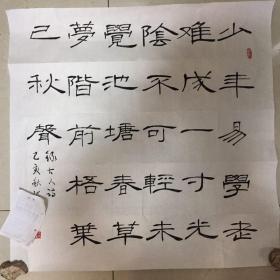 少年易學老
难成一寸光
陰不可輕未
覺池塘春草
夢階前梧葉
已秋聲
錄古人詩
己亥秋